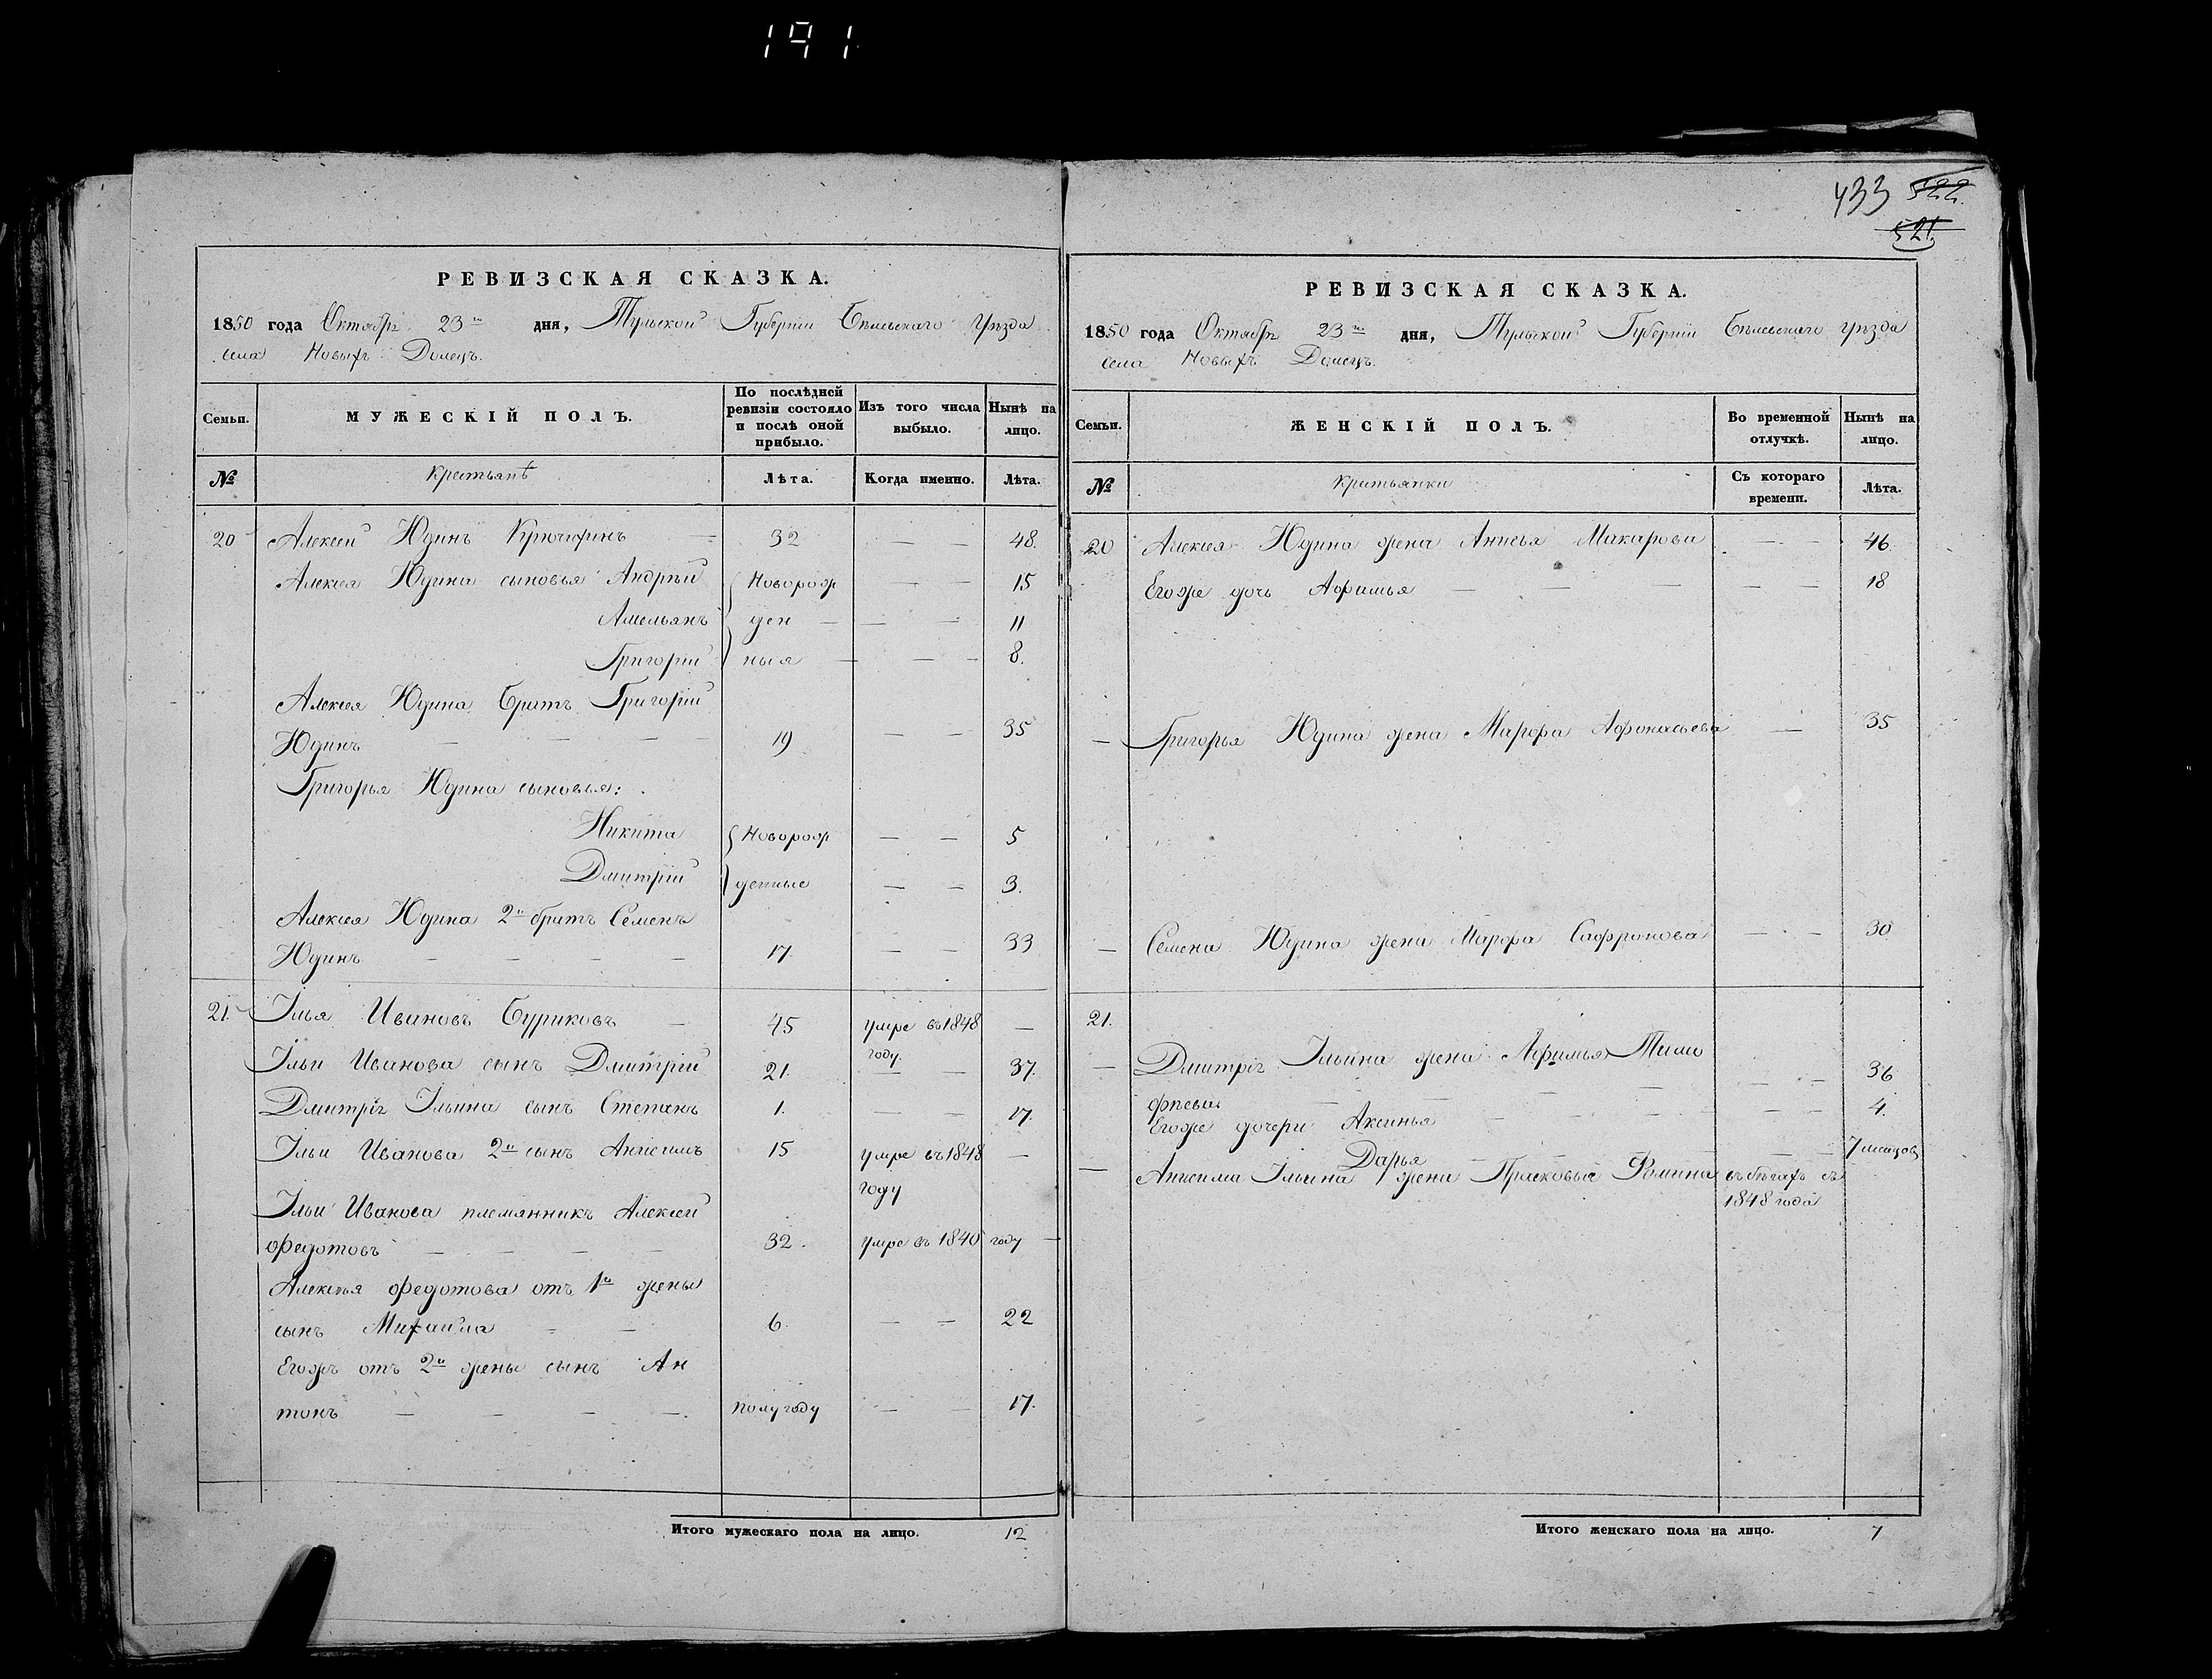 191
433 522.
521.
РЕВИЗСКАЯ СКАЗКА.
1850 года Октября 23го дня, Тульской Губерніи Бѣлевскаго Уѣзда
села Новыхъ Долецъ.
Семьи. МУЖЕСКІЙ ПОЛЪ. По послѣдней ревизіи состояло и послѣ оной прибыло. Изъ того числа выбыло. Нынѣ на лицо.
№ Крестьянѣ Лѣта. Когда именно. Лѣта.
20 Алексей Юдинъ — 32 — — 48.
Алексея Юдина сыновья Андрей { Новорож — — 15
Амельянъ ден — — — 11
Григорій ныя — — — 8.
Алексея Юдина братъ Григорій
Юдинъ — — — — 19 — — 35
Григорья Юдина сыновья:
Никита { Новорож — — 5
Дмитрій } денные — — 3.
Алексея Юдина 2й братъ Семенъ
Юдинъ — — — — 17 — — 33
21. Илья Ивановъ Буриковъ — 45 умре въ 1848 —
году.
Ильи Иванова сынъ Дмитрій 21. — — 37.
Дмитрія Ильина сынъ Степанъ 1. — — 17.
Ильи Иванова 2й сынъ Анисимъ 15 умре въ 1848 —
году
Ильи Иванова племянникъ Алексей
Федотовъ — — — — 32. умре въ 1840 году —
Алексея Федотова отъ 1й жены
сынъ Михаила — — 6. — — 22
Егожъ отъ 2й жены сынъ Ан
тонъ — — — —. полугоду — — 17.
Итого мужескаго пола на лицо. 12
РЕВИЗСКАЯ СКАЗКА.
1850 года Октября 23го дня, Тульской Губерніи Бѣлевскаго Уѣзда
села Новыхъ Долецъ.
Семьи. ЖЕНСКІЙ ПОЛЪ. Во временной отлучкѣ. Нынѣ на лицо.
№ Крестьянки Съ котораго времени. Лѣта.
20 Алексея Юдина жена Анисья Макарова — — 46.
Егоже дочь Афимья — — — — — 18
— Григорья Юдина жена Марфа Афонасьева — 35
— Семена Юдина жена Марфа Сафронова — — 30
21.
— Дмитрія Ильина жена Афимья Тимо
фѣева — — — — — 36
Егоже дочери Аксинья — — — — 4.
Дарья — — — — 7 месяцов
— Анисима Ильина жена Прасковья Фомина въ бегахъ съ
1848 года
Итого женскаго пола на лицо. 7